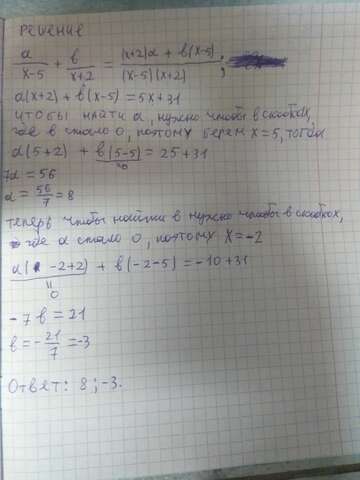 решение
a/(x-5) + в/(x+2) = ((x+2)a + в(x-5))/((x-5)(x+2)) ;
a(x+2) + в(x-5) = 5x+31
чтобы найти a, нужно чтобы в скобках,
где в стало 0, поэтому берем x=5, тогда
a(5+2) + в(5-5) = 25+31
0
7a = 56
a = 56/7 = 8
теперь чтобы найти в нужно чтобы в скобках,
где a стало 0, поэтому x=-2
a(-2+2) + в(-2-5) = -10+31
0
-7в = 21
в = -21/7 = -3
Ответ: 8; -3.